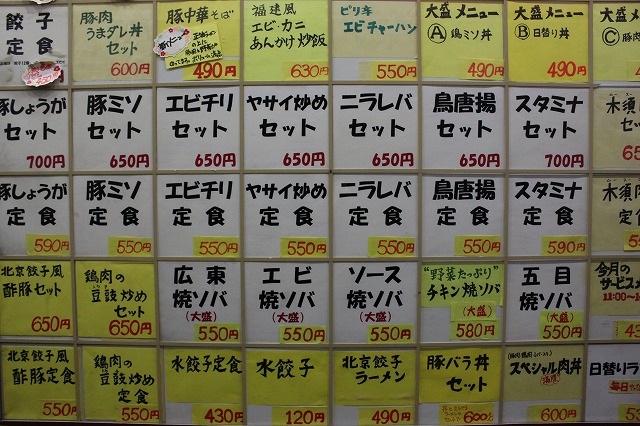 餃子
定食
豚肉
うまダレ丼
セット
600円
豚中華そば
490円
福建風
エビ・カニ
あんかけ炒飯
630円
ピリ辛
エビチャーハン
550円
大盛メニュー
Ⓐ鶏ミソ丼
490円
大盛メニュー
Ⓑ日替り丼
490円
大盛
Ⓒ豚肉
豚しょうが
セット
700円
豚ミソ
セット
650円
エビチリ
セット
650円
ヤサイ炒め
セット
650円
ニラレバ
セット
650円
鳥唐揚
セット
650円
スタミナ
セット
700円
木須
セッ
65
豚しょうが
定食
590円
豚ミソ
定食
550円
エビチリ
定食
550円
ヤサイ炒め
定食
550円
ニラレバ
定食
550円
鳥唐揚
定食
550円
スタミナ
定食
590円
木須肉
定食
北京餃子風
酢豚セット
650円
鶏肉の
豆豉炒め
セット
650円
広東
焼ソバ
(大盛)
550円
エビ
焼ソバ
(大盛)
550円
ソース
焼ソバ
(大盛)
550円
"野菜たっぷり"
チキン焼ソバ
(大盛)
580円
五目
焼ソバ
(大盛)
550円
今月の
サービスメ
11:00〜
北京餃子風
酢豚定食
550円
鶏肉の
豆豉炒め
定食
550円
水餃子定食
430円
水餃子
120円
北京餃子
ラーメン
490円
豚バラ丼
セット
600円
スペシャル肉丼
600円
日替りラ
毎日